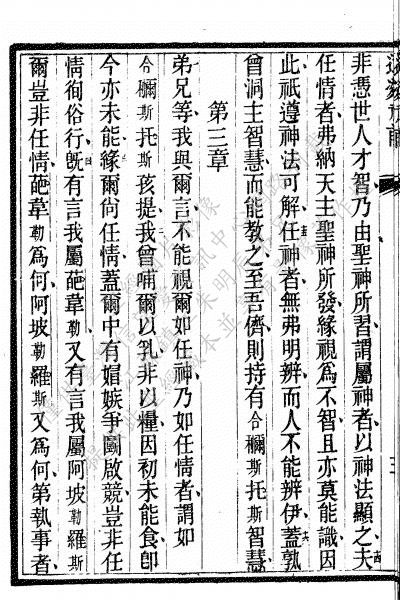 非憑世人才智乃由聖神所習謂屬神者以神法顯之夫
任情者弗納天主聖神所發緣視為不智且亦莫能識因
此祇遵神法可解任神者無弗明辨而人不能辨伊蓋孰
曾洞主智慧而能教之至吾儕則持有合𡭗斯托斯智慧
第三章
弟兄等我與爾言不能視爾如任神乃如任情者謂如
合𡭗斯托斯孩提我曾哺爾以乳非以糧因初未能食卽
今亦未能緣爾尙任情蓋爾中有媢嫉爭鬬啟競豈非任
情徇俗行旣有言我屬葩韋勒又有言我屬阿坡勒羅斯
爾豈非任情葩韋勒為何阿坡勒羅斯又為何第執事者